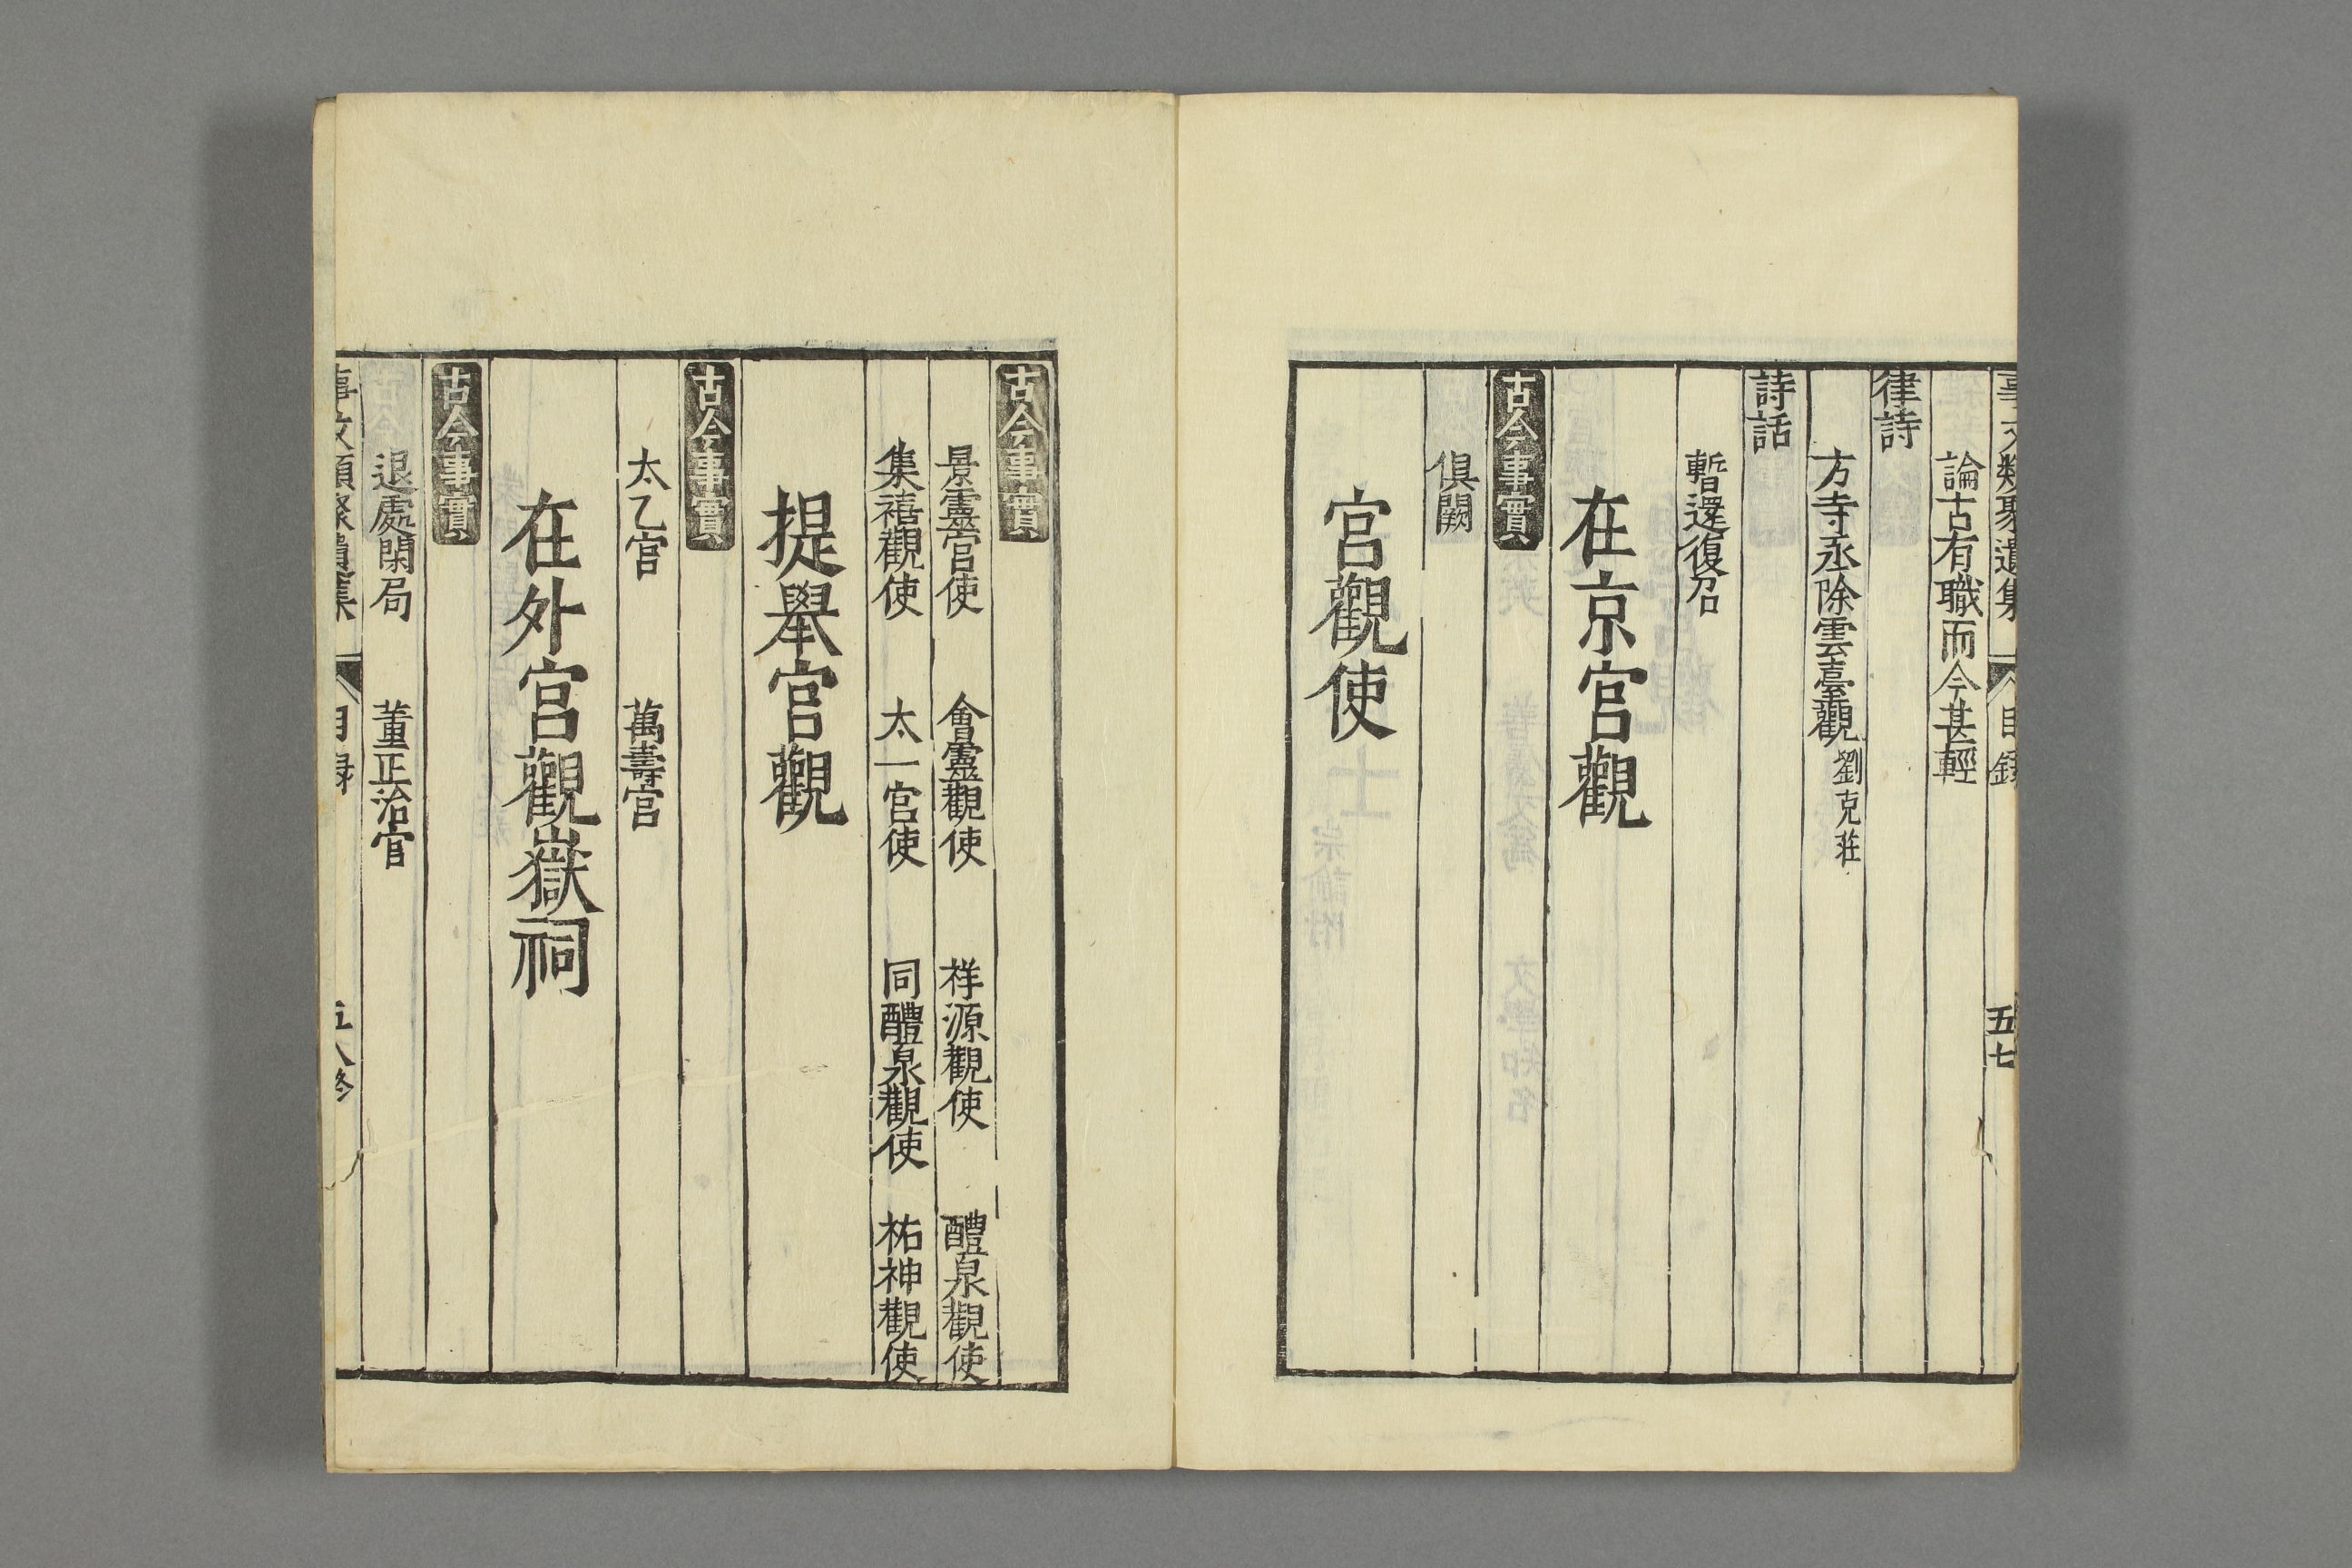 事文類聚遺集 目錄 五七
論古有職而今甚輕
律詩
方寺丞除雲臺觀 劉克莊
詩話
暫還復召
在京宮觀
古今事實
俱闕
宮觀使
古今事實
景靈宮使 會靈觀使 祥源觀使 醴泉觀使
集禧觀使 太一宮使 同醴泉觀使 祐神觀使
提舉宮觀
古今事實
太乙宮 萬壽宮
在外宮觀嶽祠
古今事實
退處閑局 董正治官
事文類聚遺集 目録 五八